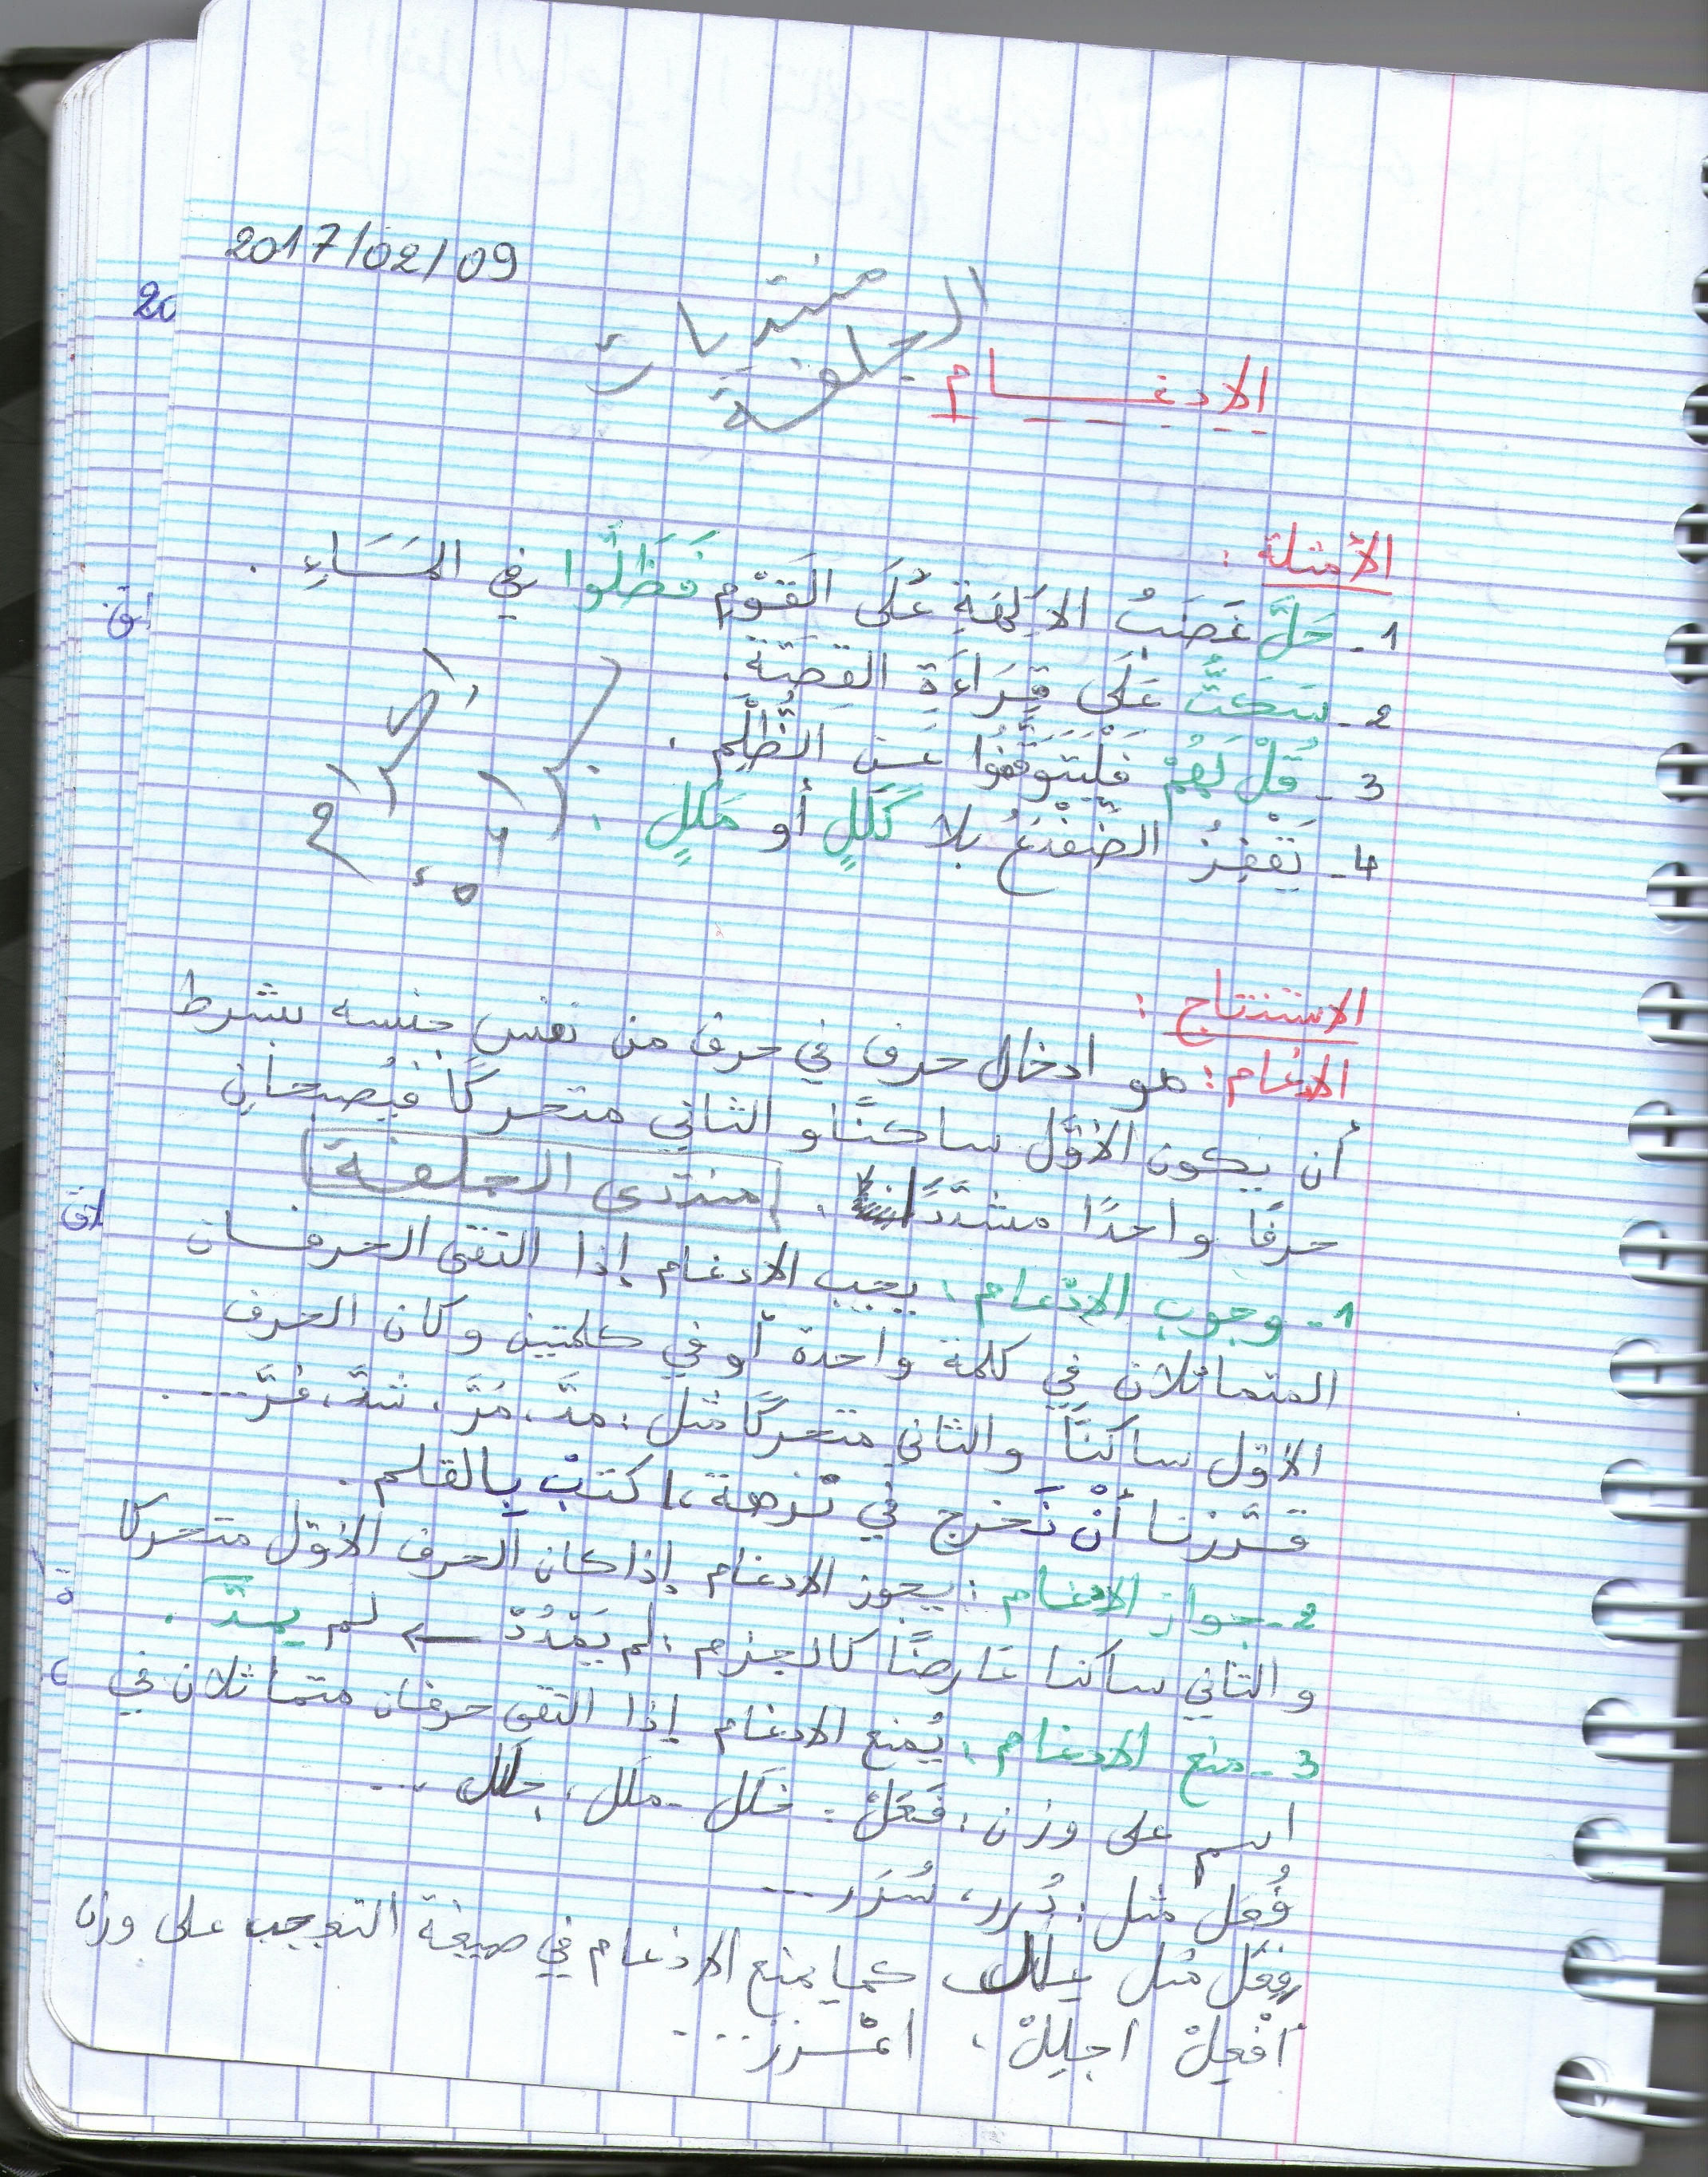 2017/02/09
منتديات
الجلفة
الادغـــــام
الأمثلة :
1- حَلَّ غَضَبُ الآلِهَةِ عَلَى القَوْمِ فَظَلُّوا فِي المَسَاءِ .
2- سَكَتُّ عَلَى قِرَاءَةِ القِصَّة .
3- قُلْ لَهُمْ فَلْيَتَوَقَّفُوا عَن التَّظَلُّم .
4- يَقْفِزُ الضّفْدَعُ بلا كَلَلٍ أو مَلَلٍ .
الاستنتاج :
الادغام : هو ادخال حرف في حرف من نفس جنسه بشرط
أن يكون الأوّل ساكنًا و الثاني متحركًا فيُصبحانِ
حرفًا واحدًا مشدّدًا .
منتدى الجلفة
1- وجوب الادغام : يجب الادغام إذا التقى الحرفان
المتماثلان في كلمة واحدة أو في كلمتين وكان الحرف
الأوّل ساكنًا والثاني متحركًا مثل : مدَّ، مَرَّ، شدَّ، فَرَّ....
قرّرنا أنْ نَخرج في نزهة، اكتبْ بالقلم .
2- جواز الادغام : يجوز الادغام إذا كان الحرف الأوّل متحركا
و الثاني ساكنا عَارضًا كالجزم : لم يَمْدُدْ ← لم يمدَّ .
3- منع الادغام : يُمنع الادغام إذا التقى حرفان متماثلان في
اسم على وزن : فَعَلْ : خَلَل - مَلَل، جَلَل ...
فُعَل مثل : دُرر، سُرَر ...
فِعَل مثل عِلل كما يمنع الادغام في صيغة التعجب على وزن
افْعِلْ اجلِلْ ، اعْزز....